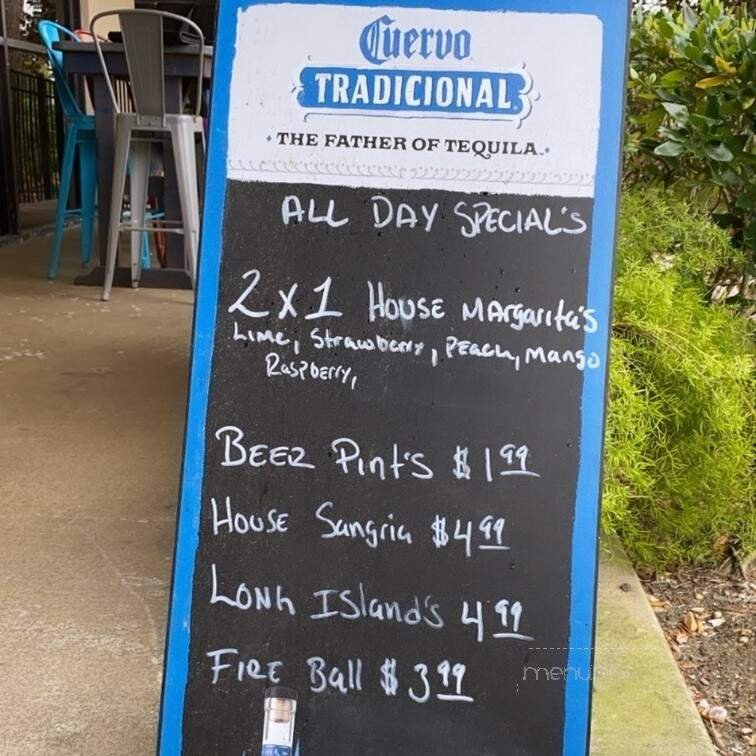 Cuervo
TRADICIONAL
THE FATHER OF TEQUILA.
ALL DAY SPECIAL'S
2 x 1 HOUSE MARgarita's
Lime, Strawberry, PEach, Mango
RaspberRy,
BEER Pint's $1.99
HOUSE Sangria $4.99
LONG ISland's 4.99
FIRE Ball $3.99
menu